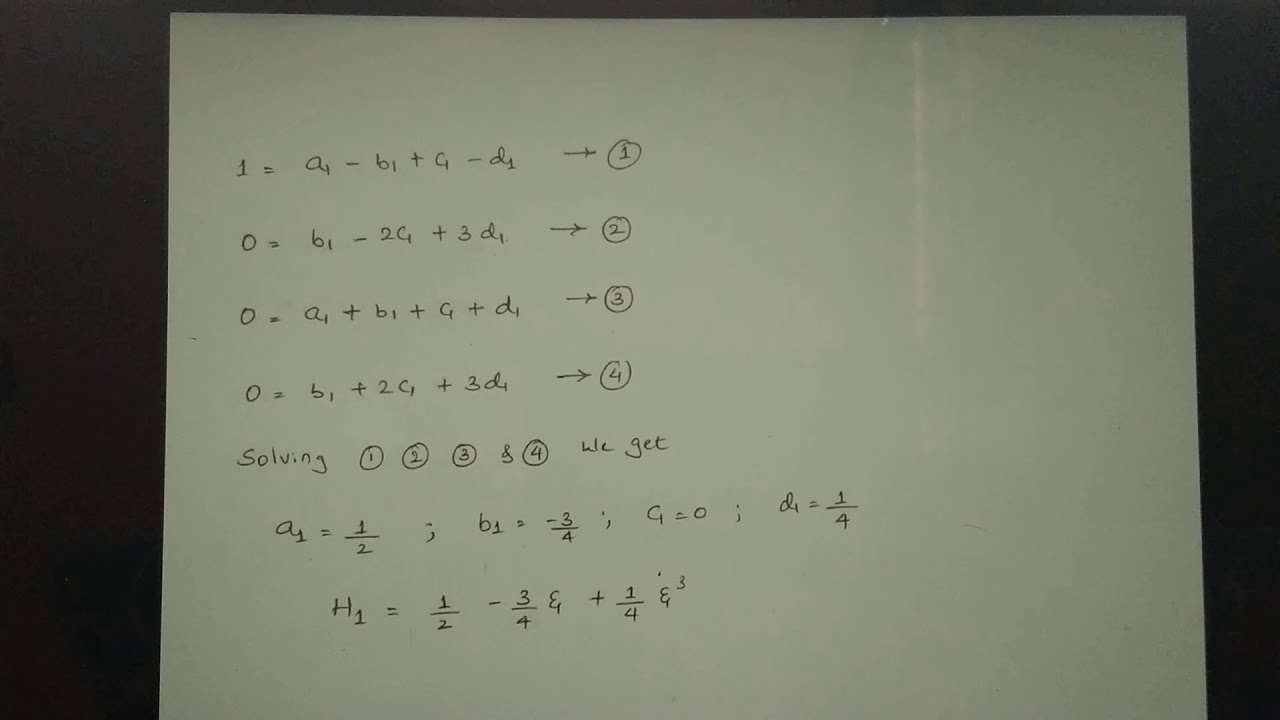 1 = a₁ - b₁ + c₁ - d₁ → ①
0 = b₁ - 2c₁ + 3d₁ → ②
0 = a₁ + b₁ + c₁ + d₁ → ③
0 = b₁ + 2c₁ + 3d₁ → ④
Solving ① ② ③ & ④ we get
a₁ = 1/2 ; b₁ = -3/4 ; c₁ = 0 ; d₁ = 1/4
H₁ = 1/2 - 3/4 ξ + 1/4 ξ³